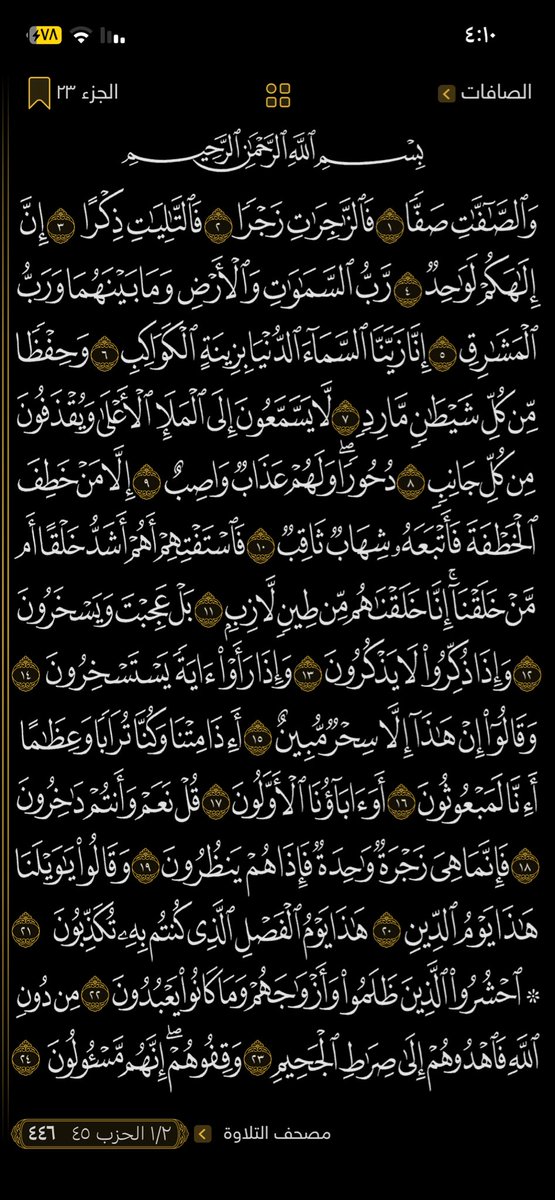 ٤:١٠
٧٨
الصافات
الجزء ٢٣
بِسۡمِ ٱللَّهِ ٱلرَّحۡمَٰنِ ٱلرَّحِيمِ
وَٱلصَّٰٓفَّٰتِ صَفّٗا ١ فَٱلزَّٰجِرَٰتِ زَجۡرٗا ٢ فَٱلتَّٰلِيَٰتِ ذِكۡرًا ٣ إِنَّ
إِلَٰهَكُمۡ لَوَٰحِدٞ ٤ رَّبُّ ٱلسَّمَٰوَٰتِ وَٱلۡأَرۡضِ وَمَا بَيۡنَهُمَا وَرَبُّ
ٱلۡمَشَٰرِقِ ٥ إِنَّا زَيَّنَّا ٱلسَّمَآءَ ٱلدُّنۡيَا بِزِينَةٍ ٱلۡكَوَاكِبِ ٦ وَحِفۡظٗا
مِّن كُلِّ شَيۡطَٰنٖ مَّارِدٖ ٧ لَّا يَسَّمَّعُونَ إِلَى ٱلۡمَلَإِ ٱلۡأَعۡلَىٰ وَيُقۡذَفُونَ
مِن كُلِّ جَانِبٖ ٨ دُحُورٗاۖ وَلَهُمۡ عَذَابٞ وَاصِبٌ ٩ إِلَّا مَنۡ خَطِفَ
ٱلۡخَطۡفَةَ فَأَتۡبَعَهُۥ شِهَابٞ ثَاقِبٞ ١٠ فَٱسۡتَفۡتِهِمۡ أَهُمۡ أَشَدُّ خَلۡقًا أَم
مَّنۡ خَلَقۡنَآۚ إِنَّا خَلَقۡنَٰهُم مِّن طِينٖ لَّازِبِۭ ١١ بَلۡ عَجِبۡتَ وَيَسۡخَرُونَ
١٢ وَإِذَا ذُكِّرُواْ لَا يَذۡكُرُونَ ١٣ وَإِذَا رَأَوۡاْ ءَايَةٗ يَسۡتَسۡخِرُونَ ١٤
وَقَالُوٓاْ إِنۡ هَٰذَآ إِلَّا سِحۡرٞ مُّبِينٌ ١٥ أَءِذَا مِتۡنَا وَكُنَّا تُرَابٗا وَعِظَٰمًا
أَءِنَّا لَمَبۡعُوثُونَ ١٦ أَوَءَابَآؤُنَا ٱلۡأَوَّلُونَ ١٧ قُلۡ نَعَمۡ وَأَنتُمۡ دَٰخِرُونَ
١٨ فَإِنَّمَا هِيَ زَجۡرَةٞ وَٰحِدَةٞ فَإِذَا هُمۡ يَنظُرُونَ ١٩ وَقَالُواْ يَٰوَيۡلَنَا
هَٰذَا يَوۡمُ ٱلدِّينِ ٢٠ هَٰذَا يَوۡمُ ٱلۡفَصۡلِ ٱلَّذِي كُنتُم بِهِۦ تُكَذِّبُونَ ٢١
۞ ٱحۡشُرُواْ ٱلَّذِينَ ظَلَمُواْ وَأَزۡوَٰجَهُمۡ وَمَا كَانُواْ يَعۡبُدُونَ ٢٢ مِن دُونِ
ٱللَّهِ فَٱهۡدُوهُمۡ إِلَىٰ صِرَٰطِ ٱلۡجَحِيمِ ٢٣ وَقِفُوهُمۡۖ إِنَّهُم مَّسۡـُٔولُونَ ٢٤
مصحف التلاوة
١/٢ الحزب ٤٥
٤٤٦